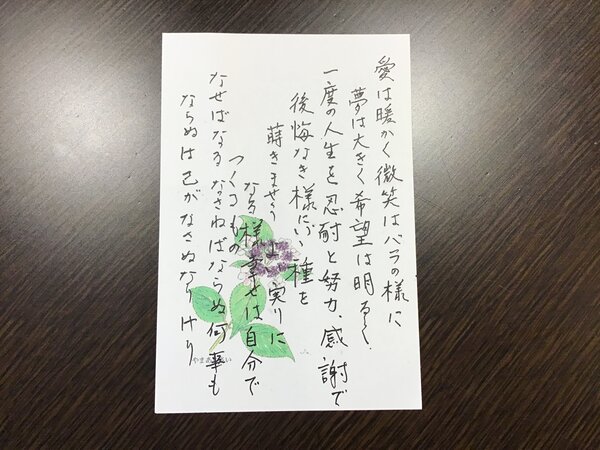 愛は暖かく微笑はバラの様に
夢は大きく希望は明るく、
一度の人生を忍耐と努力、感謝で
後悔なき様にい 種を
蒔きませう 上 実りに
なる様 幸せは自分で
つくるもの
なせばなる なさねばならぬ何事も
ならぬは己がなさぬなりけり
やまあ さい